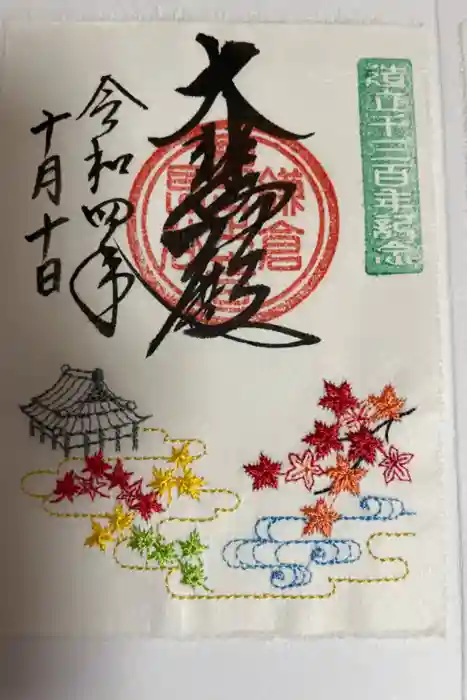 造立千三百年紀念
大悲殿
鎌倉
令和四年
十月十日